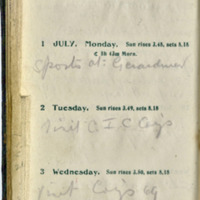 1 JULY. Monday. Sun rises 3.48, sets 8.18
☾ 3h 43m Morn.
Sports at Gerardmer
2 Tuesday. Sun rises 3.49, sets 8.18
Visit C.I.C
3 Wednesday. Sun rises 3.50, sets 8.18
Visit